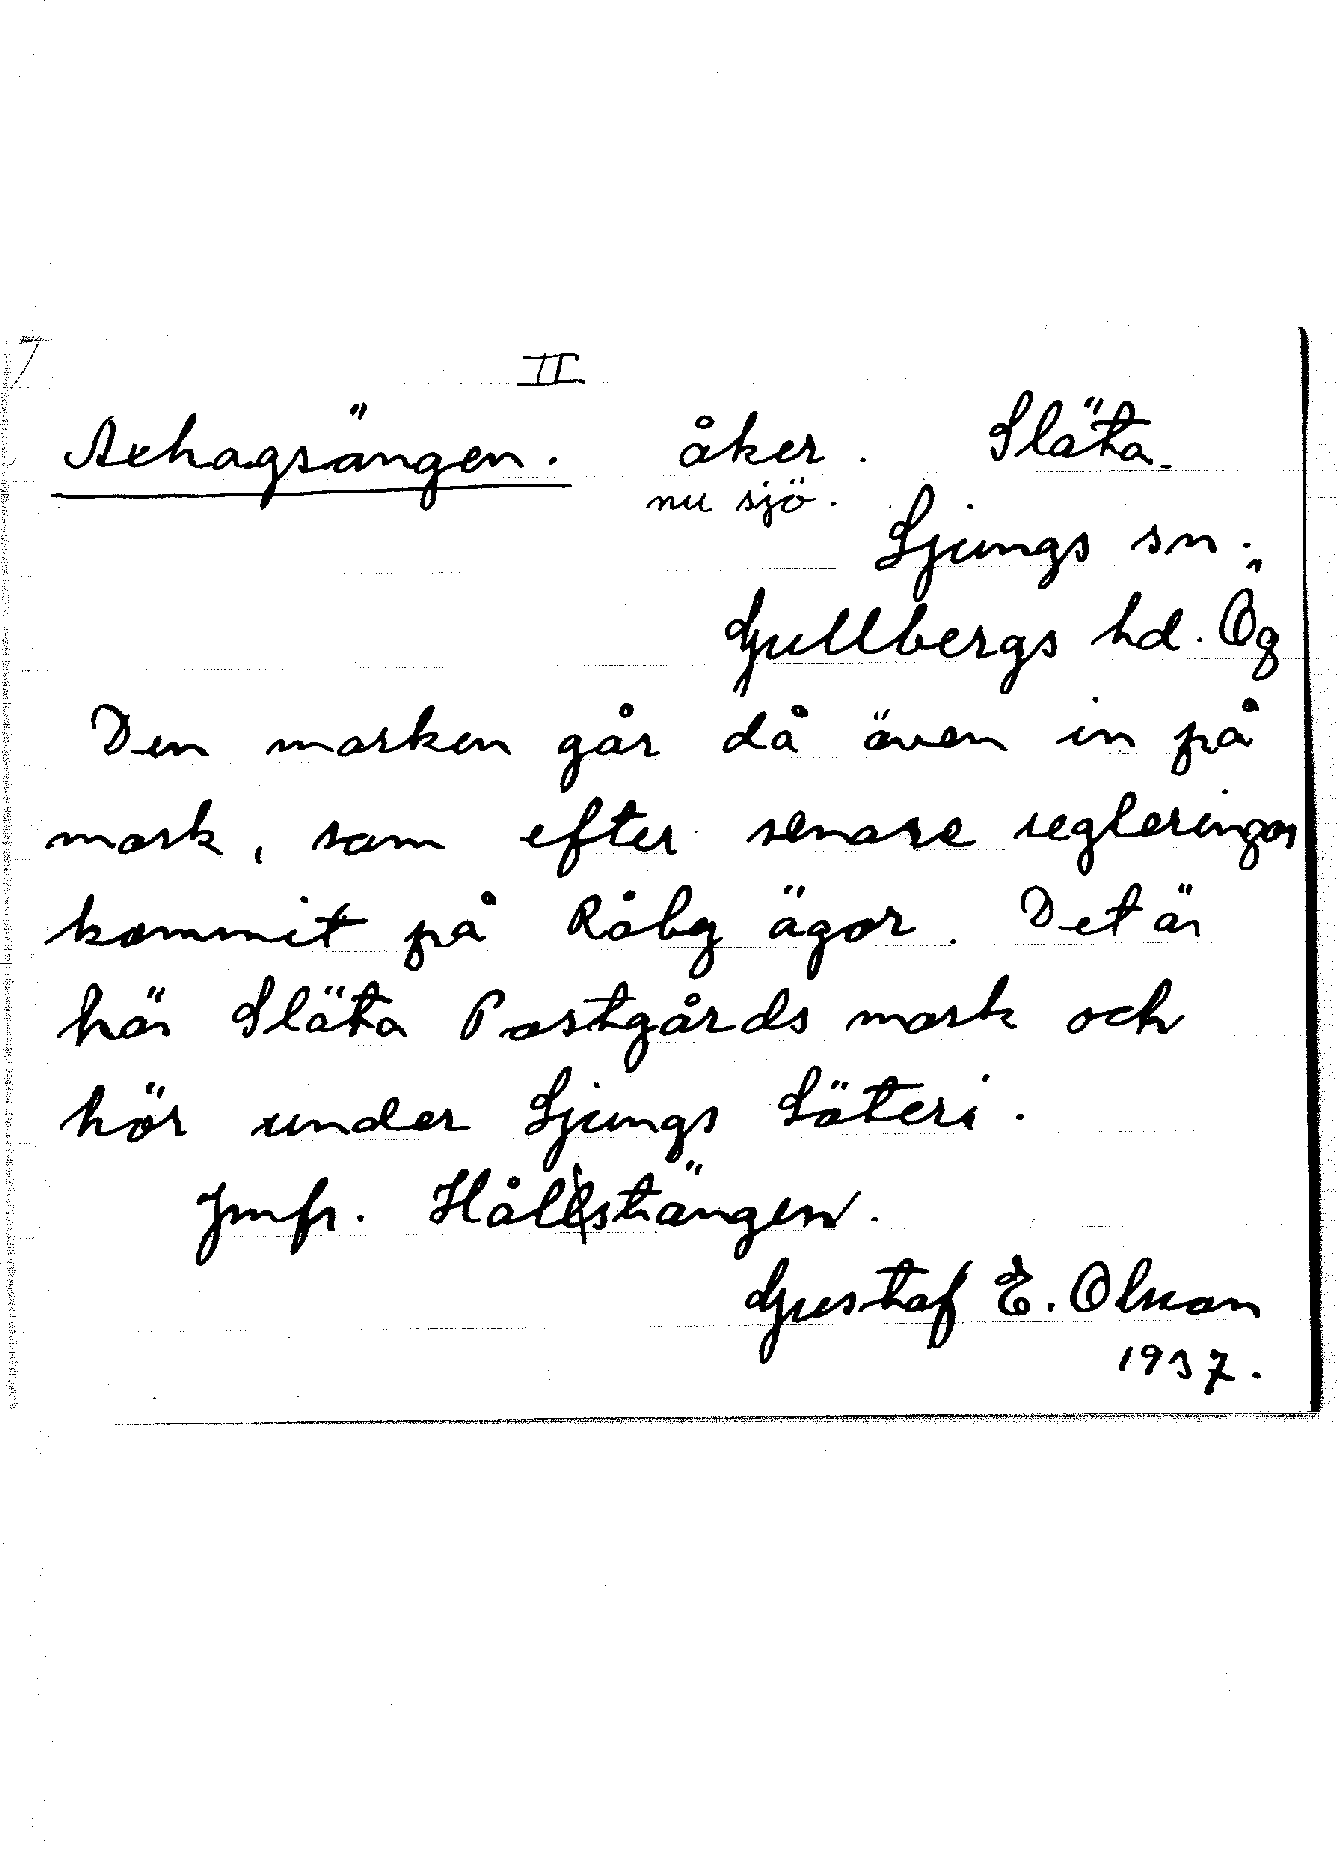 II
Axhagsängen. åker. Släta
nu sjö.
Ljungs sn.
Gullbergs hd. Ög
Den marken går då även in på
mark, som efter senare regleringar
kommit på Råby ägor. Det är
här Släta Postgårds mark och
hör under Ljungs Säteri.
Jmfr. Hållstängen.
Gustaf E. Olsson
1937.